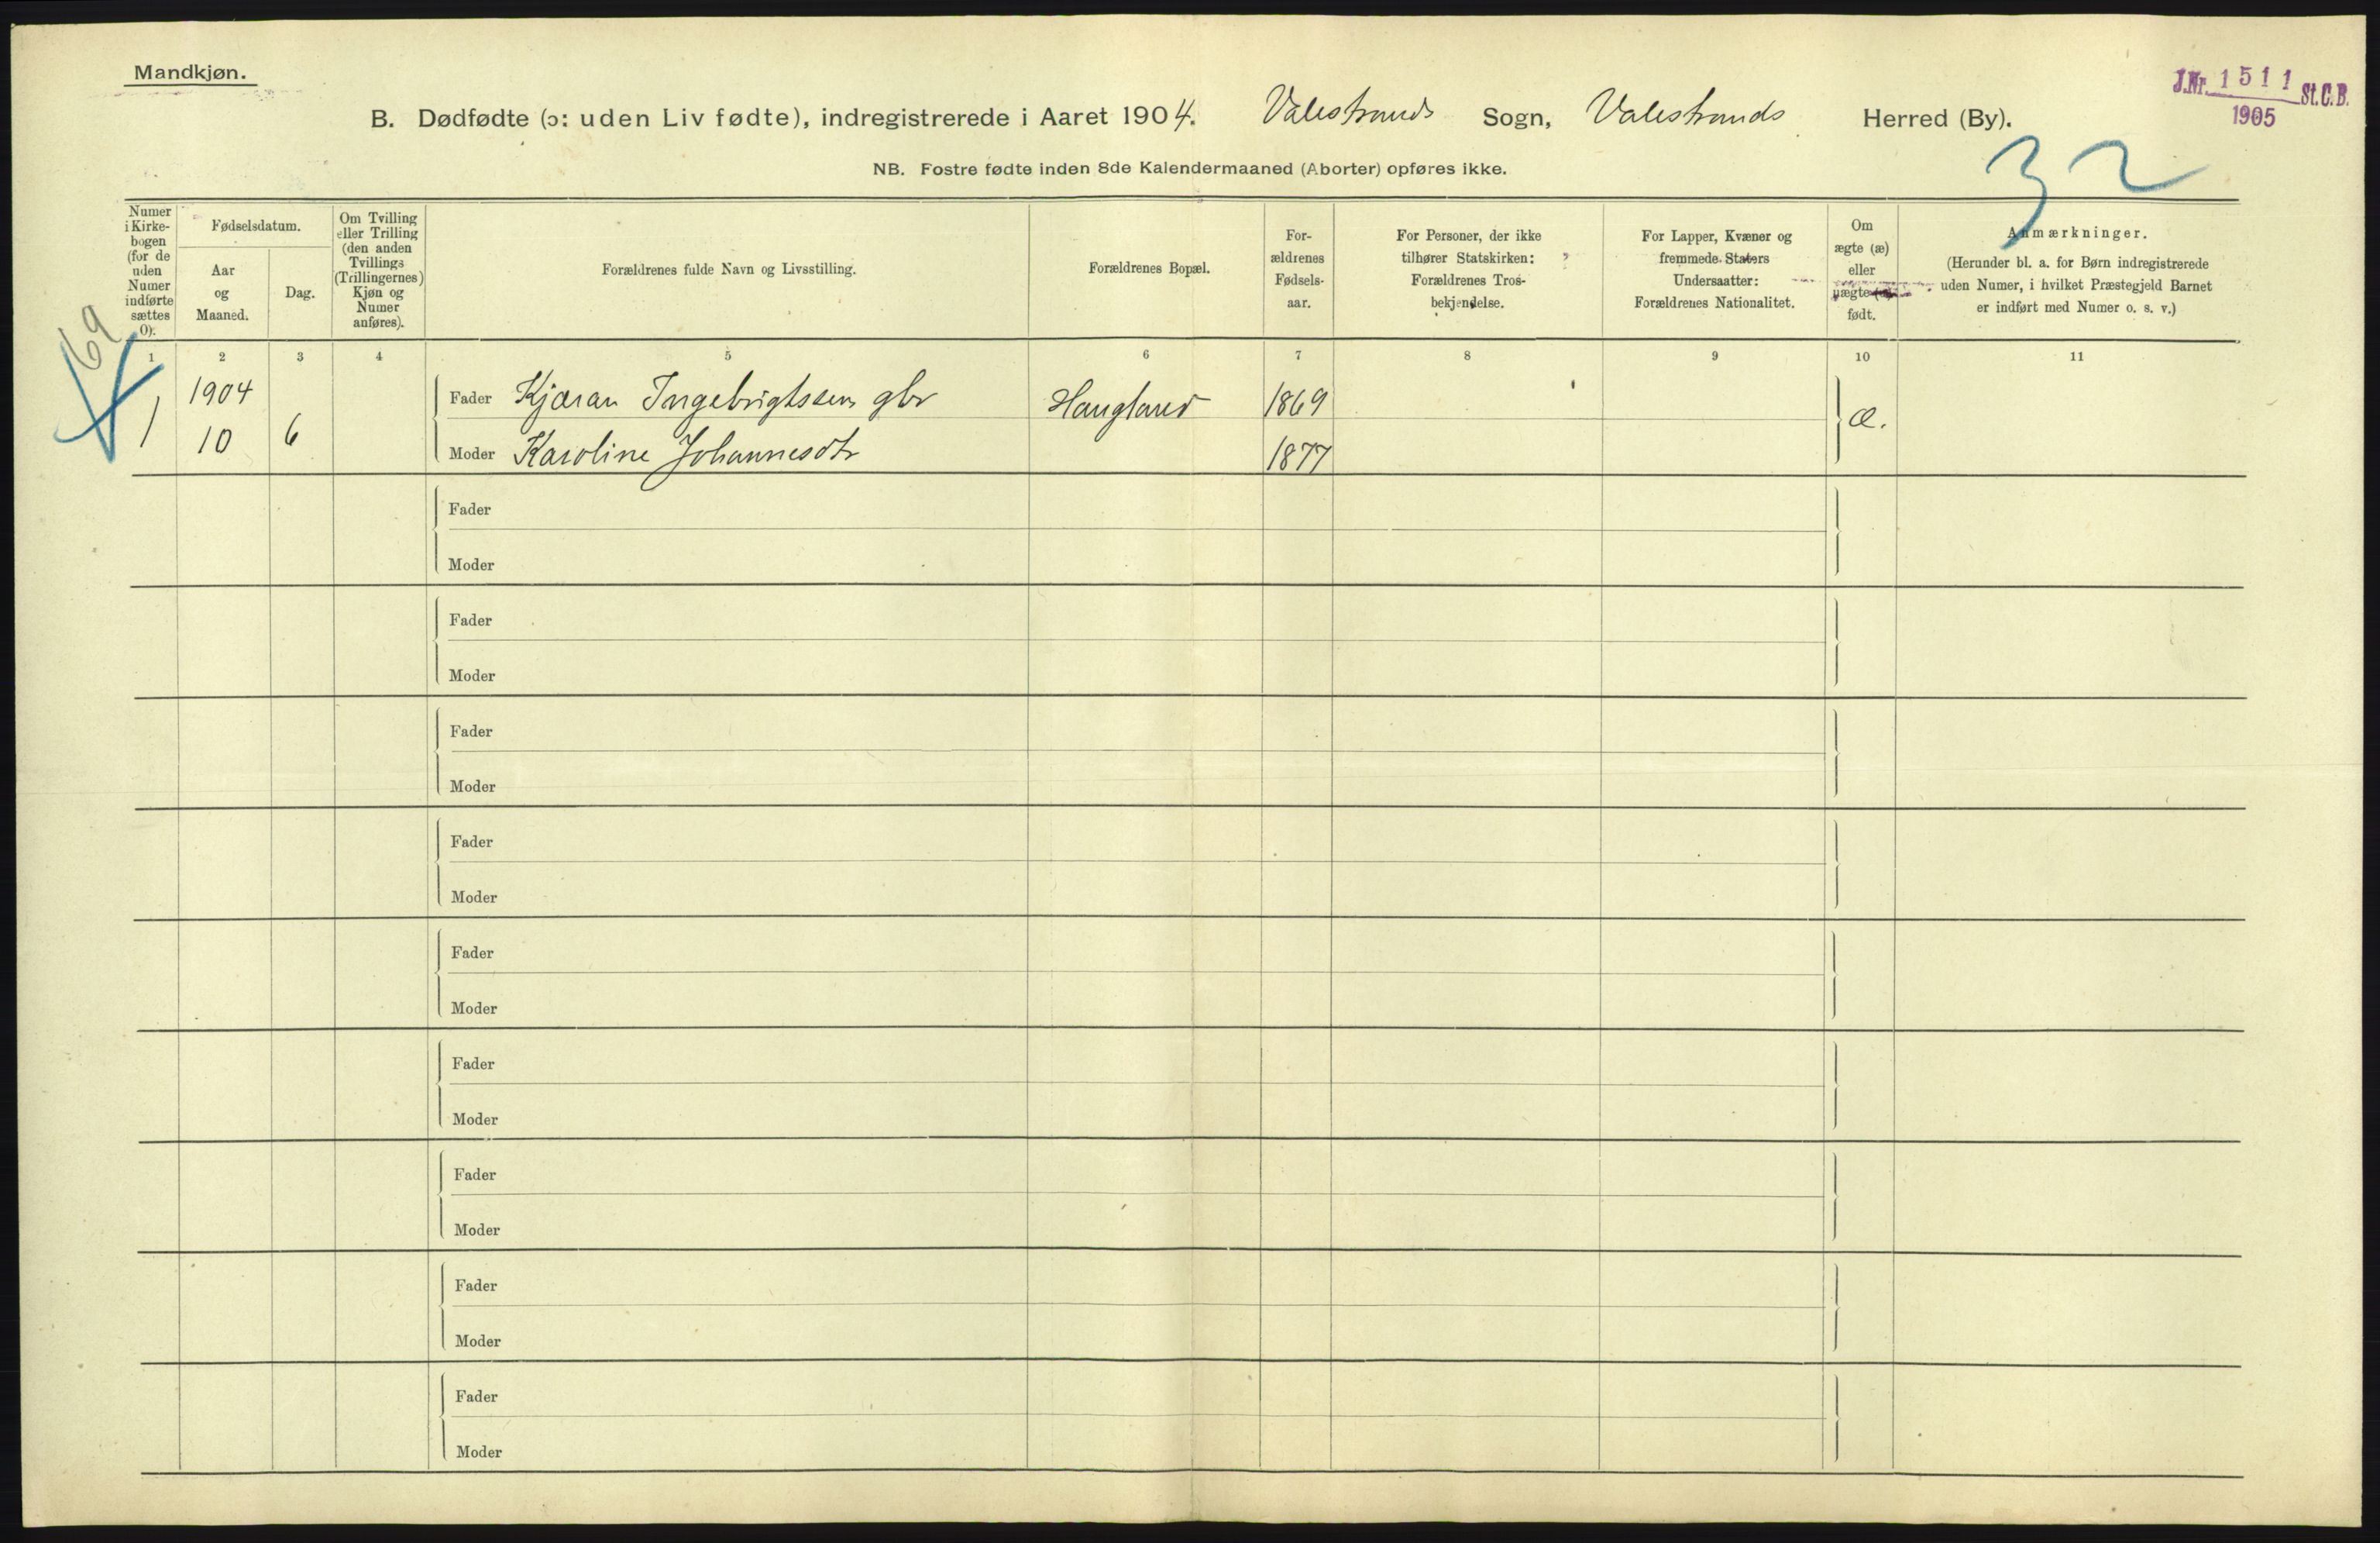 Mandkjøn.
J.Nr. 1511 St.C.B.
1905
B. Dødfødte (ɔ: uden Liv fødte), indregistrerede i Aaret 1904. Valestrands Sogn, Valestrands Herred (By).
32
NB. Fostre fødte inden 8de Kalendermaaned (Aborter) opføres ikke.
Numer
i Kirke-
bogen
(for de
uden
Numer
indførte
sættes
0).
Fødselsdatum.
Aar
og
Maaned.
Dag.
Om Tvilling
eller Trilling
(den anden
Tvillings
(Trillingernes)
Kjøn og
Numer
anføres).
Forældrenes fulde Navn og Livsstilling.
Forældrenes Bopæl.
For-
ældrenes
Fødsels-
aar.
For Personer, der ikke
tilhører Statskirken:
Forældrenes Tros-
bekjendelse.
For Lapper, Kvæner og
fremmede Staters
Undersaatter:
Forældrenes Nationalitet.
Om
ægte (æ)
eller
uægte
født.
Anmærkninger.
(Herunder bl. a. for Børn indregistrerede
uden Numer, i hvilket Præstegjeld Barnet
er indført med Numer o. s. v.)
69
1 2 3 4 5 6 7 8 9 10 11
1904 Fader Kjæran Ingebrigtssen gbr Haugland 1869 æ.
1 10 6 Moder Karoline Johannesdtr 1877
Fader
Moder
Fader
Moder
Fader
Moder
Fader
Moder
Fader
Moder
Fader
Moder
Fader
Moder
Fader
Moder
Fader
Moder